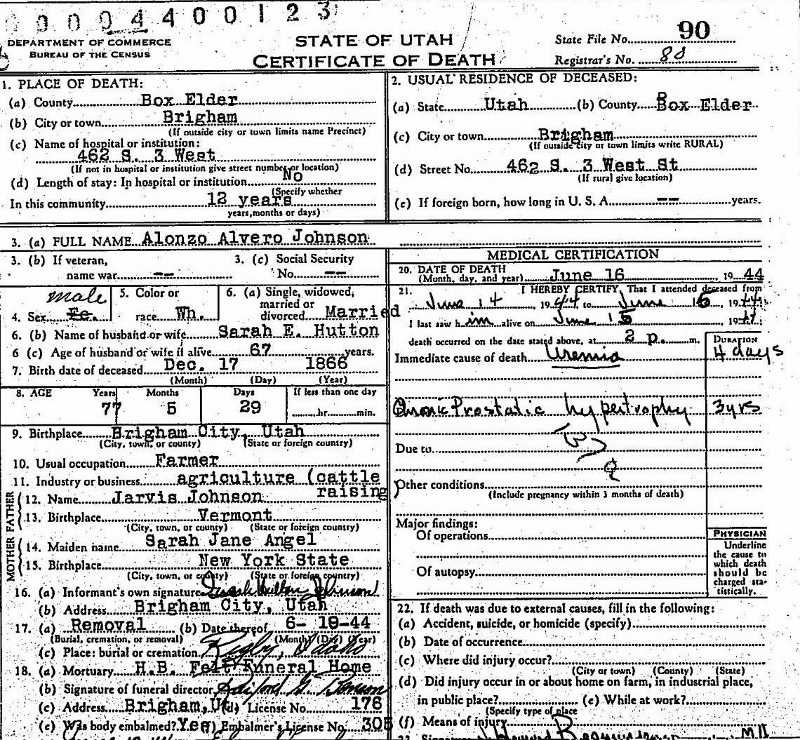 00004400123
DEPARTMENT OF COMMERCE
BUREAU OF THE CENSUS
STATE OF UTAH
CERTIFICATE OF DEATH
State File No. 90
Registrar's No. 80
1. PLACE OF DEATH:
(a) County Box Elder
(b) City or town Brigham
(If outside city or town limits name Precinct)
(c) Name of hospital or institution:
462 S. 3 West
(If not in hospital or institution give street number or location)
(d) Length of stay: In hospital or institution No
(Specify whether
In this community 12 years
years, months or days)
2. USUAL RESIDENCE OF DECEASED:
(a) State Utah (b) County Box Elder
(c) City or town Brigham
(If outside city or town limits write RURAL)
(d) Street No 462 S. 3 West St
(If rural give location)
(e) If foreign born, how long in U. S. A. -- years.
3. (a) FULL NAME Alonzo Alvero Johnson
3. (b) If veteran, name war --
3. (c) Social Security No. --
4. Sex Fe. male
5. Color or race Wh.
6. (a) Single, widowed, married or divorced Married
6. (b) Name of husband or wife Sarah E. Hutton
6 (c) Age of husband or wife if alive 67 years.
7. Birth date of deceased Dec. 17 1866
(Month) (Day) (Year)
8. AGE Years Months Days If less than one day
77 5 29 hr. min.
9. Birthplace Brigham City, Utah
(City, town, or county) (State or foreign country)
10. Usual occupation Farmer
11. Industry or business agriculture (cattle raising)
MOTHER FATHER
12. Name Jarvis Johnson
13. Birthplace Vermont
(City, town, or county) (State or foreign country)
14. Maiden name Sarah Jane Angel
15. Birthplace New York State
(City, town, or county) (State or foreign country)
16. (a) Informant's own signature Johnson
(b) Address Brigham City, Utah
17. (a) Removal (b) Date thereof 6-19-44
(Burial, cremation, or removal) (Month) (Day) (Year)
(c) Place: burial or cremation Rigby, Idaho
18. (a) Mortuary H.B. Felt Funeral Home
(b) Signature of funeral director
(c) Address Brigham, Ut (d) License No. 176
(e) Was body embalmed? Yes (f) Embalmer's License No. 305
MEDICAL CERTIFICATION
20. DATE OF DEATH
(Month, day, and year) June 16 1944
21. I HEREBY CERTIFY, That I attended deceased from
June 14 1944 to June 16 1944
I last saw him alive on June 15 1944
death occurred on the date stated above, at 2 p. m.
DURATION
Immediate cause of death Uremia 4 days
Chronic Prostatic hypertrophy 3 yrs
Due to
Other conditions
(Include pregnancy within 3 months of death)
Major findings:
Of operations
Of autopsy
PHYSICIAN
Underline the cause to which death should be charged statistically.
22. If death was due to external causes, fill in the following:
(a) Accident, suicide, or homicide (specify)
(b) Date of occurrence
(c) Where did injury occur?
(City or town) (County) (State)
(d) Did injury occur in or about home on farm, in industrial place,
in public place? (e) While at work?
(Specify type of place
(f) Means of injury